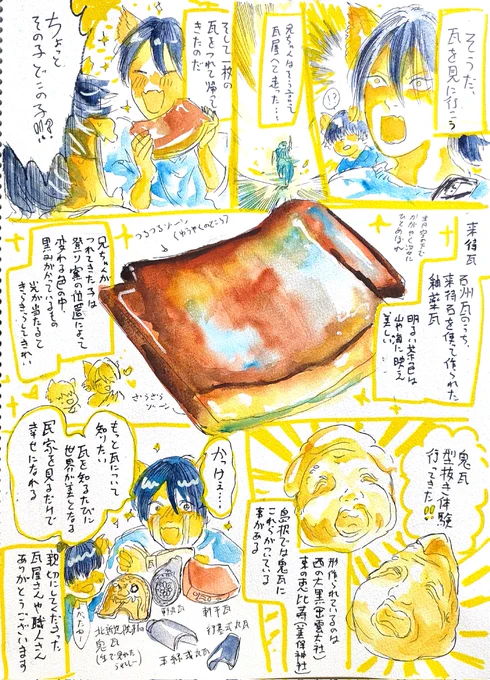 そうだ、
瓦を見に行こう
!?
兄ちゃんはそう言って
瓦屋へと走った…
そして一枚の
瓦をつれて帰って
きたのだ
ちょっと
その子どこの子!!?
来待瓦
石州瓦のうち、
来待石を使って作られた
釉薬瓦
明るい赤色は
山や海に映え
美しい
つるつるゾーン
(ゆうやくのところ)
兄ちゃんが
つれてきた子は
登り窯の位置によって
変わる色の中、
黒みがかっているもの
光が当たると
きらきらしてきれい
ざらざら
ゾーン
鬼瓦
型抜き体験
行ってきた!!
形作られているのは
西の大黒(出雲大社)
東の恵比寿(美保神社)
島根では鬼瓦に
これらがついている
事がある
かっけぇ…
もっと瓦について
知りたい
瓦を知るたびに
世界が美しくなる
民家を見るだけで
幸せになれる
瓦
軒平瓦
軒丸瓦
行基式丸瓦
玉縁式丸瓦
鬼瓦
親切にしてくださった
瓦屋さんや職人さん
ありがとうございます